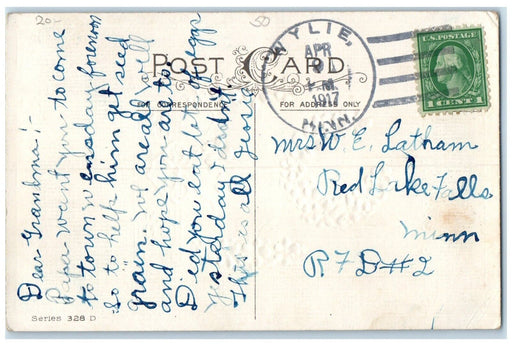 20-
50
WYLIE,
APR
1917
MINN.
U.S. POSTAGE
1 CENT 1
POST CARD
FOR CORRESPONDENCE
FOR ADDRESS ONLY
Dear Grandma:-
Papa want you to come
to town wensday forenoon
so to help him get seed
grain. we are all well
and hope you are to.
Did you eat lot of eggs
Ystdaday I didnt.
This is all
Mrs W. E. Latham
Red Lake Falls
Minn
R F D #2
Series 328 D